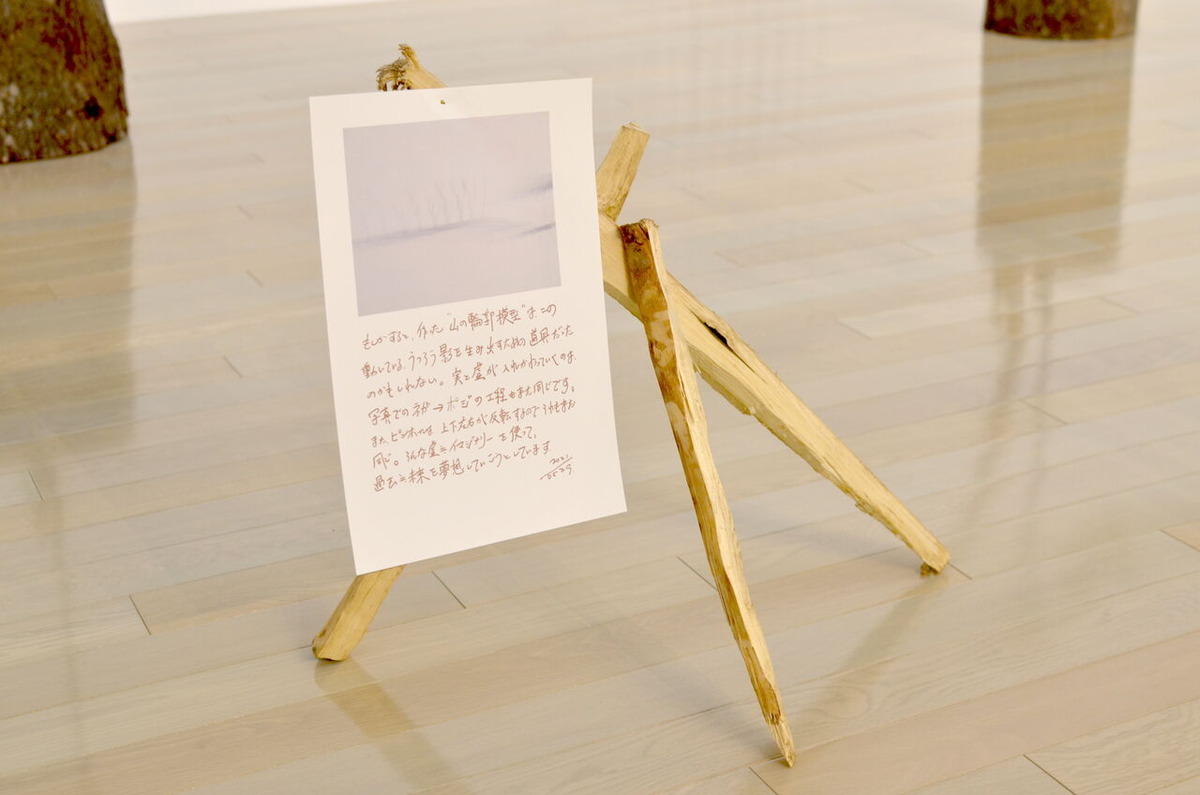 もしかすると、作った“山の輪郭模型”はこの
動いている、うつろう影を生み出すための道具だった
のかもしれない。実と虚が入れかわっていくのは、
写真でのネガ→ポジの工程もまた同じです。
また、ピンホールは上下左右が反転するのでそれもまた
同じ。そんな虚=イマジナリーを使って、
過去=未来を夢想していこうとしています
2021
05.29